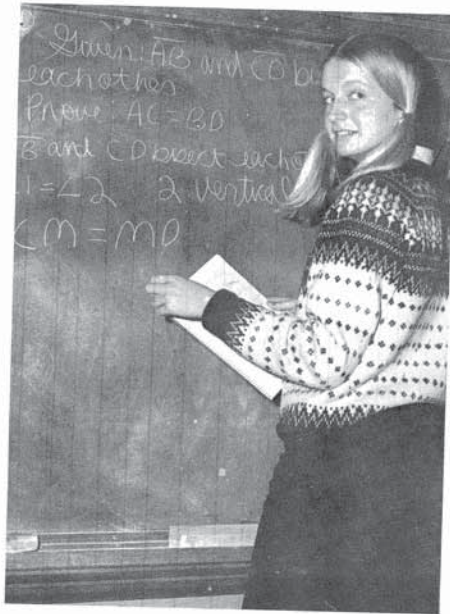 Given: AB and CD bi
each other
Prove: AC = BD
B and CD bisect each ot
1 = ∠2 2 Vertical
CM = MD